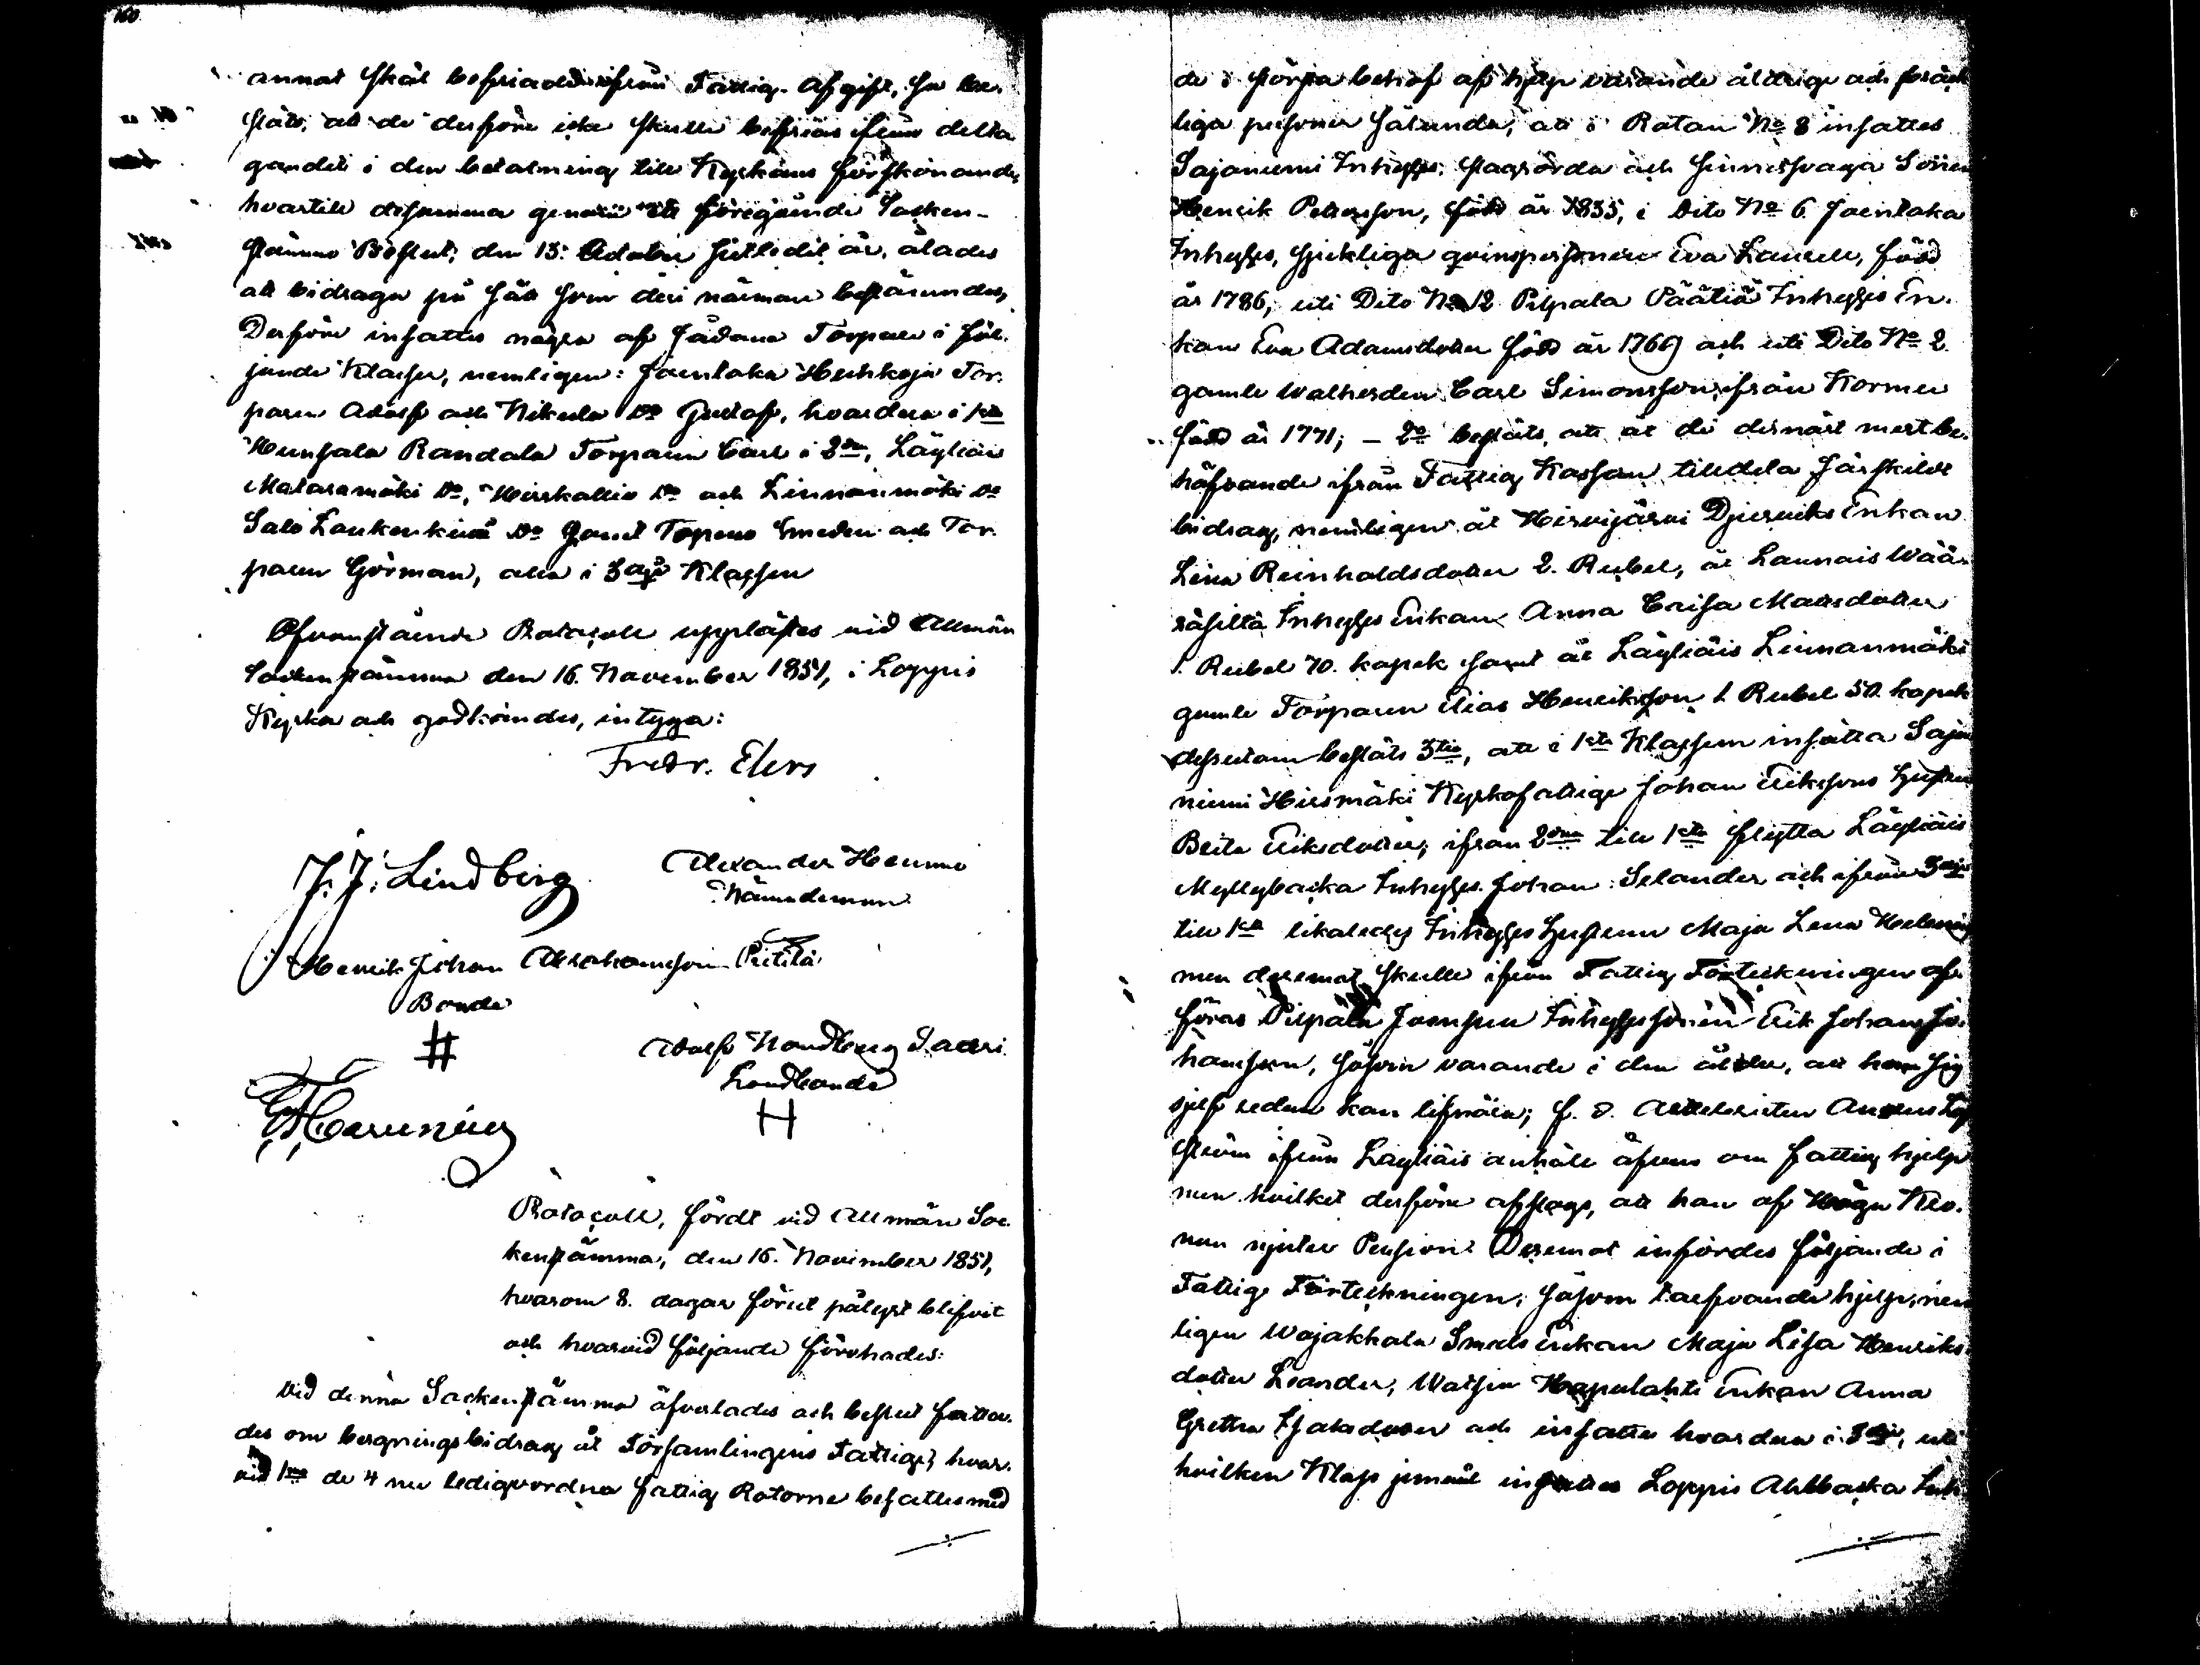 160
annat skäl befriade ifrån Fattig-Afgift, så be-
slöts, att de derföre icke skulle befrias ifrån delta
gandet i den betalning till Kyrkans förskönande,
hvartill desamma genom ett föregående Socken-
stämmo Beslut, den 13: October sistledit år, ålades
att bidraga på sätt som deri närmare bestämdes,
Derföre infattes några af sådane Torpare i föl-
jande Klasser, nemligen: Joentaka Huhkoja Tor-
paren Adolf och Nikula Do Gustaf, hvardera i 1sta
Hunsala Randala Torparen Carl i 2dra, Läyliäis
Matasamäki Do, Hirskallio Do och Linnanmäki Do
Salo Laukenkivi Do samt Topeno Smeden och Tor-
paren Görman, alla i 3dje Klassen
Ofvanstående Protocoll upplästes vid Allmän
Sockenstämma den 16. November 1851, i Loppis
Kyrka och godkändes, intyga:
Fredr. Elers
J. J. Lindberg
Alexander Hemmo
Nämndeman
Henrik Johan Abrahamsson Pietilä
Bonde
Adolf Nordberg Saari
Landbonde
H
Protocoll, fördt vid Allmän Soc-
kenstämma, den 16. November 1851,
hvarom 8. dagar förut pålyst blifvit
och hvarvid följande förehades:
Vid denna Sockenstämma öfverlades och beslut fattas-
des om bergningsbidrag åt Församlingens Fattige; hvar-
vid 1mo de 4 nu ledigvordna fattig Rotorne besattes med
de i största behof af hjelp varande åldrige och bräck
liga personer sålunda, att i Rotan No 8 insattes
Sajaniemi Inhyses slagrörda och sinnessvaga Sonen
Henrik Petersson, född år 1835, i Dito No 6 Joentaka
Inhyses, sjukliga qvinspersonen Eva Laurell, född
år 1786, uti Dito No 12 Pilpala Päätiä Inhyses En-
kan Eva Adamsdotter född år 1766 och uti Dito No 2.
gamle Valherden Carl Simonsson, ifrån Kormu
född år 1771; – 2o beslöts, att åt de dernäst mest be-
höfvande ifrån Fattig Kassan tilldela särskilt
bidrag, nemligen åt Hirvijärvi Djerviks Enkan
Lena Reinholdsdotter 2. Rubel, åt Launais Wää-
räsiltä Inhyses Enkan Anna Cajsa Matsdotter
1. Rubel 70. kopek samt åt Läyliäis Linnanmäki
gamle Torparen Elias Henriksson 1 Rubel 50. kopek
dessutom beslöts 3tio, att i 1sta Klassen insätta Saja
niemi Hirsmäki Kyrkofattige Johan Erikssons Hustru
Brita Eriksdotter, ifrån 2dra till 1sta flytta Läyliäis
Myllybacka Inhyses Johan Selander och ifrån 3dje
till 1sta likaledes Inhyses Hustrun Maja Lena
men deremot skulle ifrån Fattig Förteckningen af
föras Pilpala Joensuu Inhyses sonen Erik Johan Jo-
hansson, såsom varande i den ålder, att han sig
sjelf redan kan lifnära; f. d. Artilleristen
ström ifrån Läyliäis anhöll äfvens om fattig hjelp
men hvilket derföre afslogs, att han af Höga Kro-
nan njuter Pension. Deremot infördes följande i
Fattig Förteckningen, såsom behöfvande hjelp, nem
ligen Wojakkala Smeds Enkan Maja Lisa Henriks-
dotter Leander, Watsia Hapulahti Enkan Anna
Gretha Isaksdotter och insattes hvardera i 3dje, uti
hvilken Klass jemväl insattes Loppis Ahlbacka Inh-